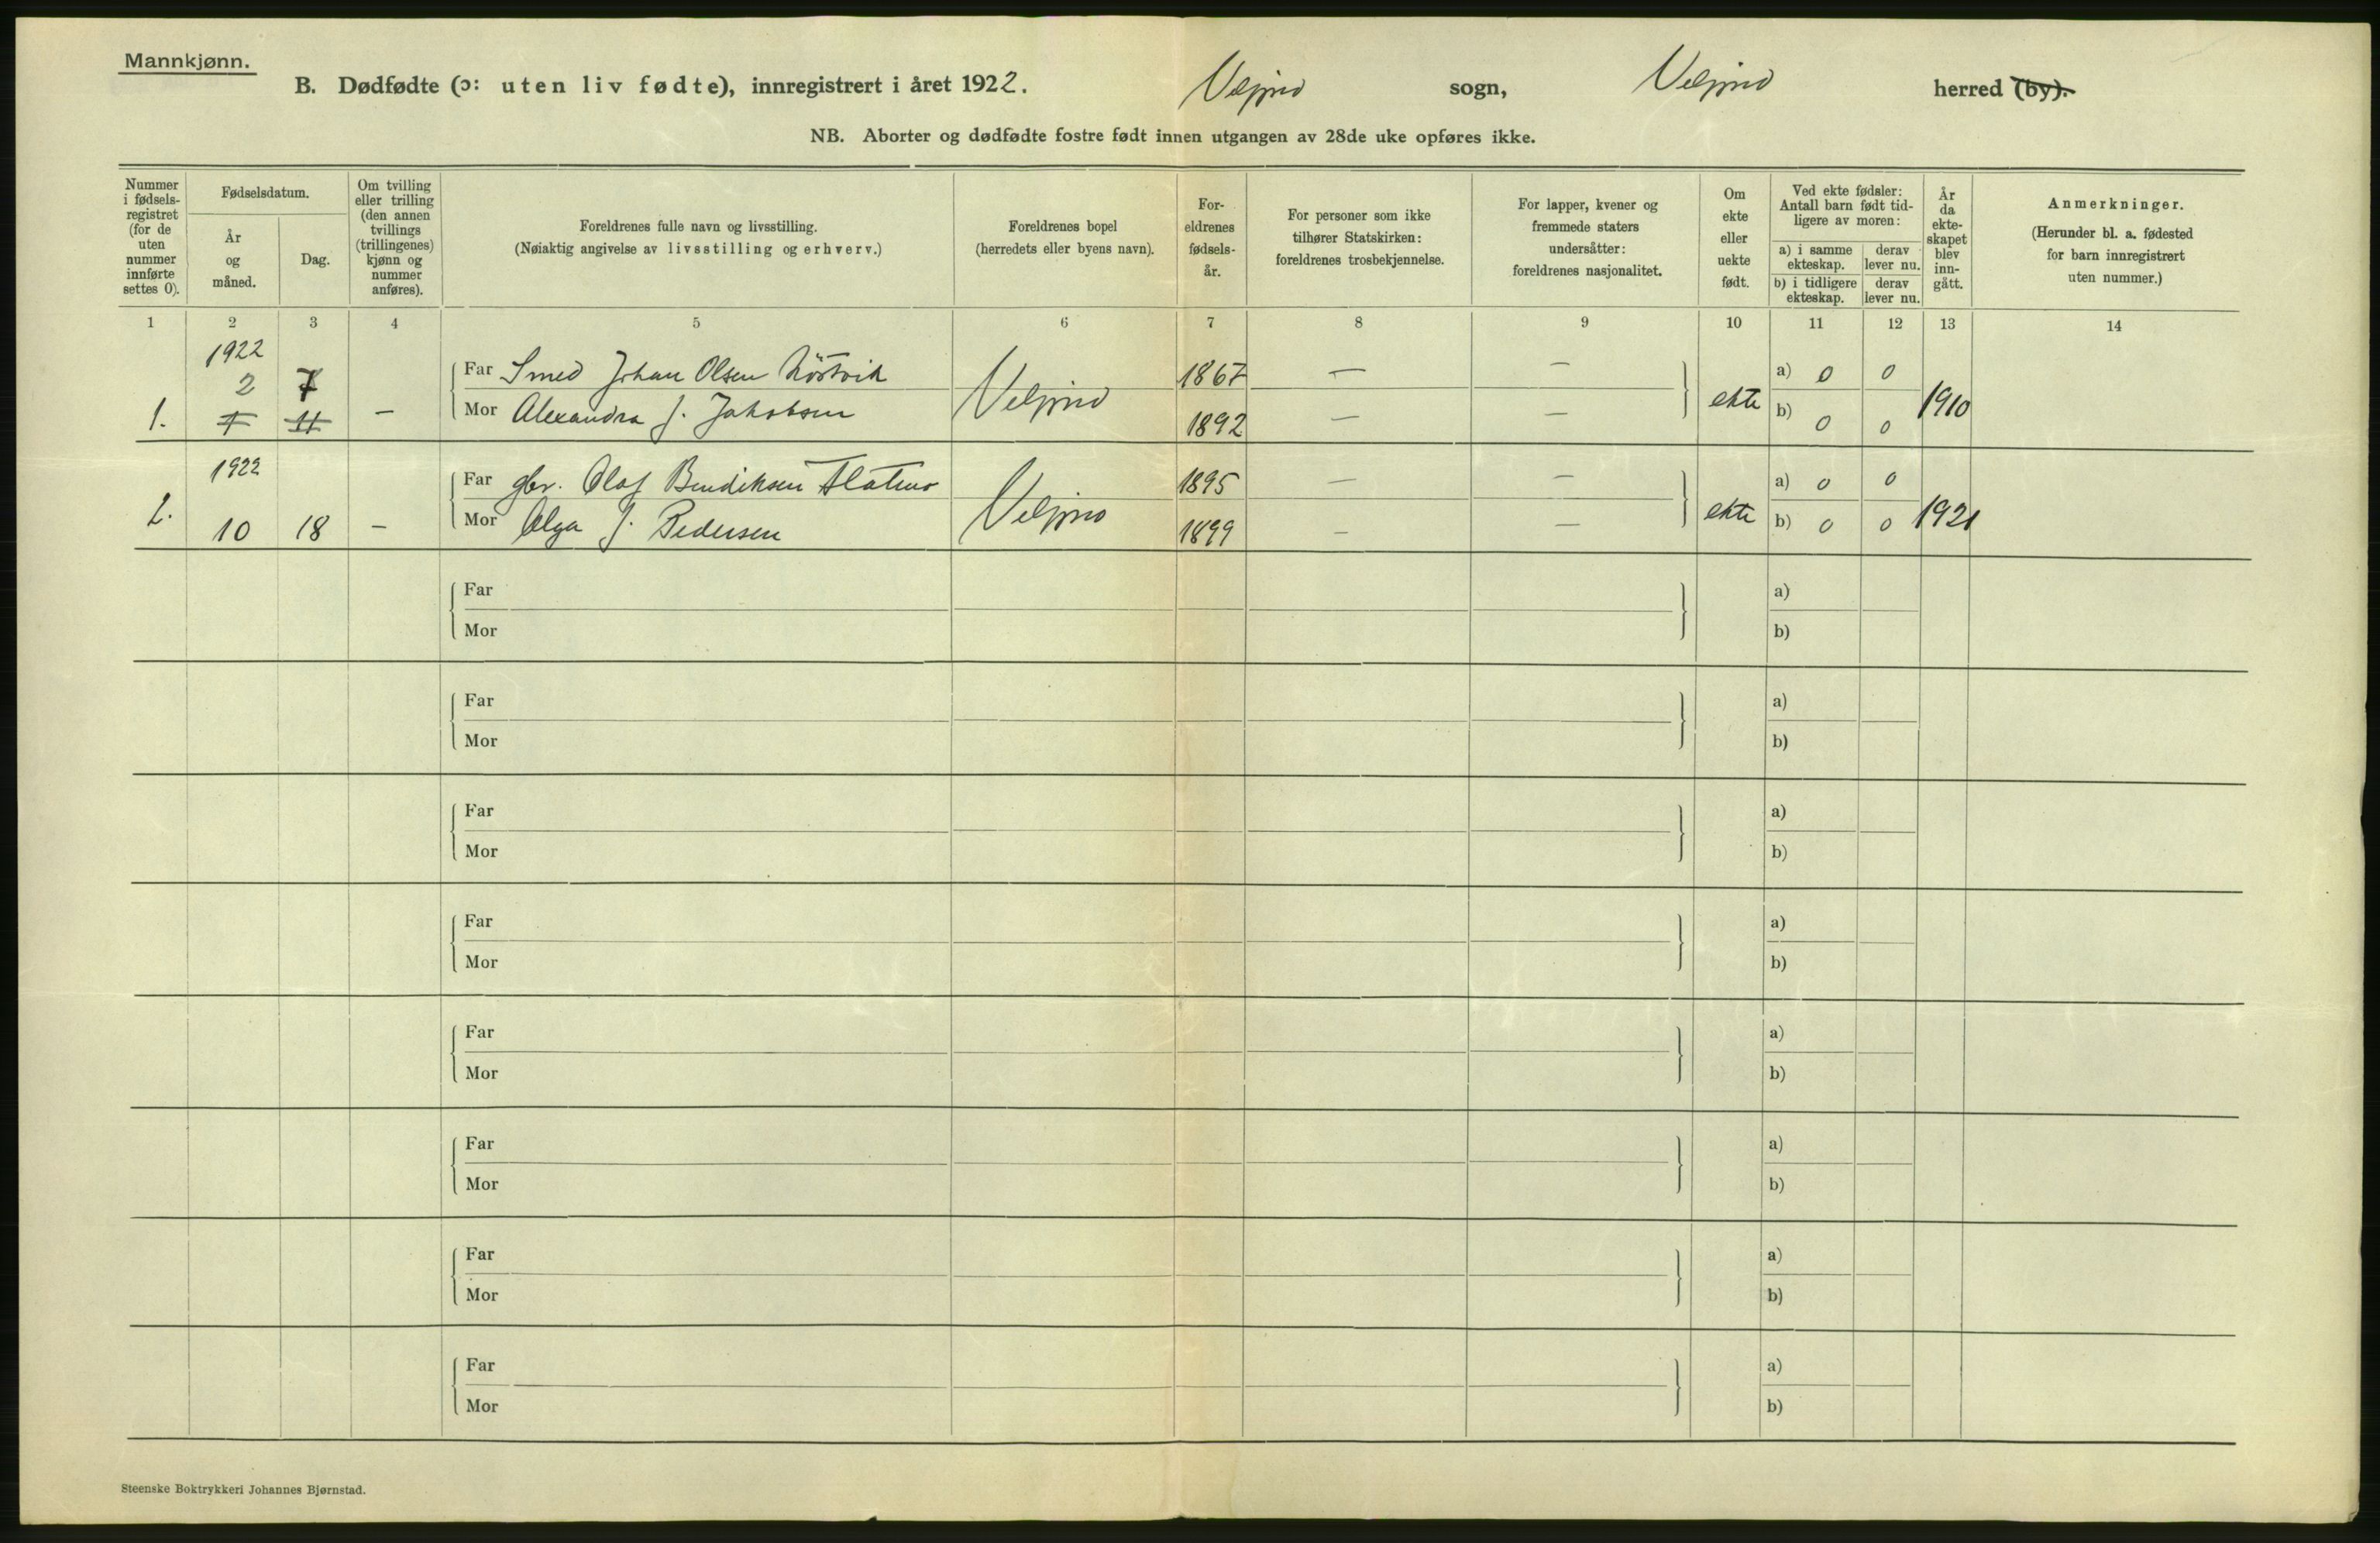 Mannkjønn.
B. Dødfødte (ɔ: uten liv fødte), innregistrert i året 1922. Velfjord sogn, Velfjord herred (by).
NB. Aborter og dødfødte fostre født innen utgangen av 28de uke opføres ikke.
Nummer i fødselsregistret (for de uten nummer innførte settes 0).
Fødselsdatum.
År og måned.
Dag.
Om tvilling eller trilling (den annen tvillings (trillingenes) kjønn og nummer anføres).
Foreldrenes fulle navn og livsstilling.
(Nøiaktig angivelse av livsstilling og erhverv.)
Foreldrenes bopel
(herredets eller byens navn).
Foreldrenes fødselsår.
For personer som ikke tilhører Statskirken: foreldrenes trosbekjennelse.
For lapper, kvener og fremmede staters undersåtter: foreldrenes nasjonalitet.
Om ekte eller uekte født.
Ved ekte fødsler: Antall barn født tidligere av moren:
a) i samme ekteskap. derav lever nu.
b) i tidligere ekteskap. derav lever nu.
År da ekteskapet blev inngått.
Anmerkninger.
(Herunder bl. a. fødested for barn innregistrert uten nummer.)
1 2 3 4 5 6 7 8 9 10 11 12 13 14
1922
2 7 Far Smed Johan Olsen 1867 — — a) 0 0
1. 7 11 — Mor Alexandra J. Jakobsen Velfjord 1892 — — ekte b) 0 0 1910
1922 Far gbr. Olaf Bendiksen 1895 — — a) 0 0
2. 10 18 — Mor Olga J. Pedersen Velfjord 1899 — — ekte b) 0 0 1921
Far a)
Mor b)
Far a)
Mor b)
Far a)
Mor b)
Far a)
Mor b)
Far a)
Mor b)
Far a)
Mor b)
Far a)
Mor b)
Far a)
Mor b)
Steenske Boktrykkeri Johannes Bjørnstad.